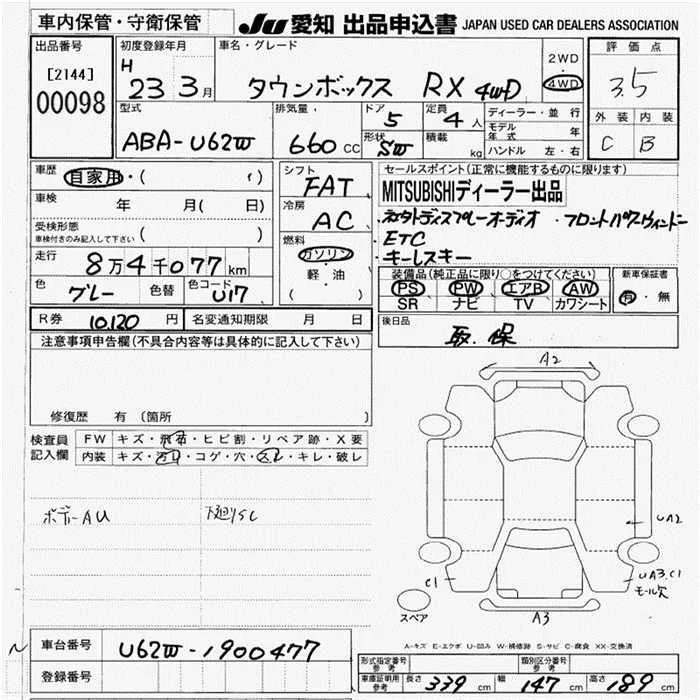 車内保管・守衛保管
JU 愛知 出品申込書 JAPAN USED CAR DEALERS ASSOCIATION
出品番号
[2144]
00098
初度登録年月
H 23 3月
車名・グレード
タウンボックス RX 4WD
2WD
4WD
評価点
3.5
外装 内装
C B
型式
ABA-U62W
排気量
660 CC
ドア
5
定員
4人
形状
SW
積載
kg
ディーラー・並行
モデル年式 年
ハンドル 左・右
車歴
自家用・( )
車検 年 月( 日)
受検形態
車検付きのみ記入して下さい ( )
走行 8万4千077km
色 グレー 色替 色コード U17
シフト
FAT
冷房
AC
燃料
ガソリン
軽・油
( )
セールスポイント(正常に機能するものに限ります)
MITSUBISHIディーラー出品
ETC
キーレスキー
装備品(純正品に限り○をつけてください)
PS PW エアB AW
SR ナビ TV カワシート
新車保証書
有・無
後日品
取 保
R券 10.120 円
名変通知期限 月 日
注意事項申告欄(不具合内容等は具体的に記入して下さい)
修復歴 有(箇所 )
検査員
記入欄
FW キズ・飛石・ヒビ割・リペア跡・X要
内装 キズ・汚れ・コゲ・穴・スレ・キレ・破レ
ボデーAU
A2
UA2
C1
UA3.C1
モール欠
A3
スペア
A-キズ E-エクボ U-凹み W-補修跡 S-サビ C-腐食 XX-交換済
車台番号 U62W-1900477
登録番号
形式指定番号 参考
類別区分番号 参考
車庫証明用 参考 長さ 339cm 幅 147cm 高さ 189cm